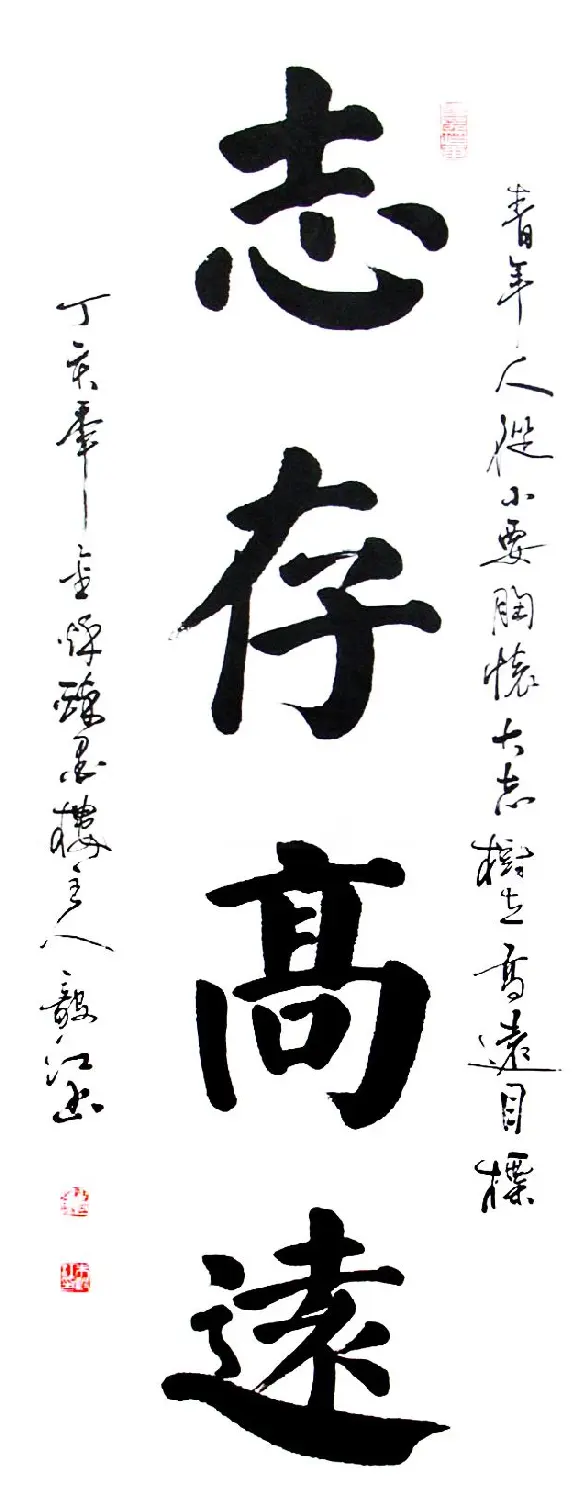 青年人從小要胸懷大志樹立高遠目標
志存髙遠
丁亥年金秋墨樓主人毅江書